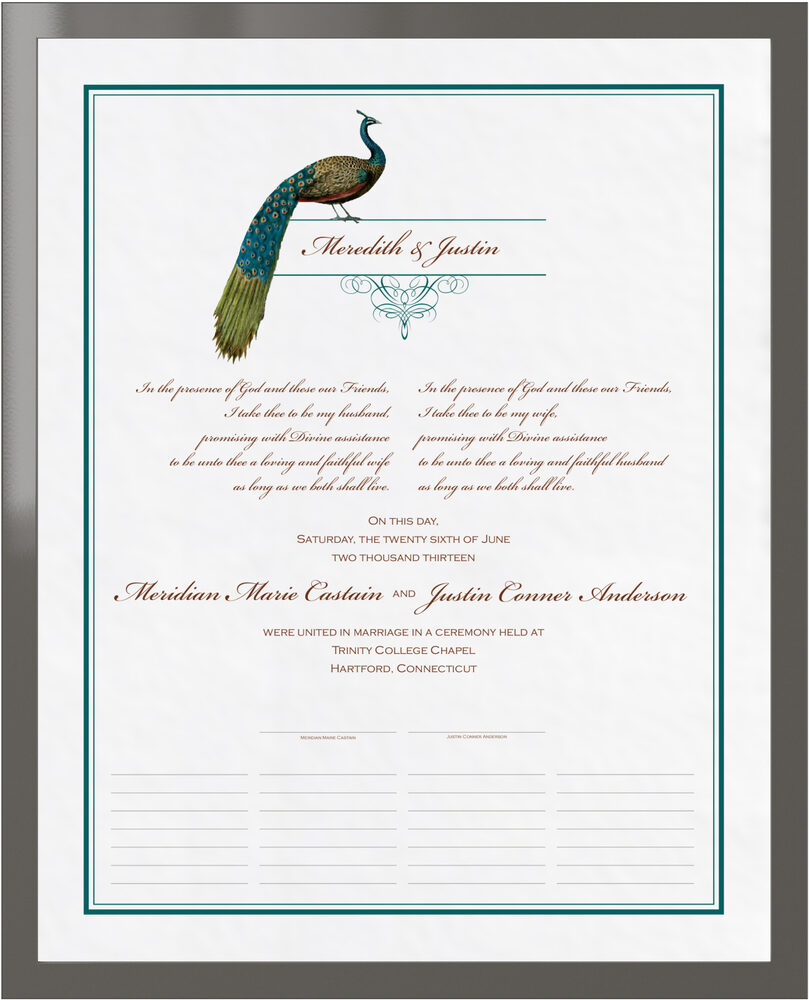 Meredith & Justin
In the presence of God and these our Friends,
I take thee to be my husband,
promising with Divine assistance
to be unto thee a loving and faithful wife
as long as we both shall live.
In the presence of God and these our Friends,
I take thee to be my wife,
promising with Divine assistance
to be unto thee a loving and faithful husband
as long as we both shall live.
On this day,
Saturday, the twenty sixth of June
two thousand thirteen
Meridian Marie Castain and Justin Conner Anderson
were united in marriage in a ceremony held at
Trinity College Chapel
Hartford, Connecticut
Meridian Maire Castain
Justin Conner Anderson